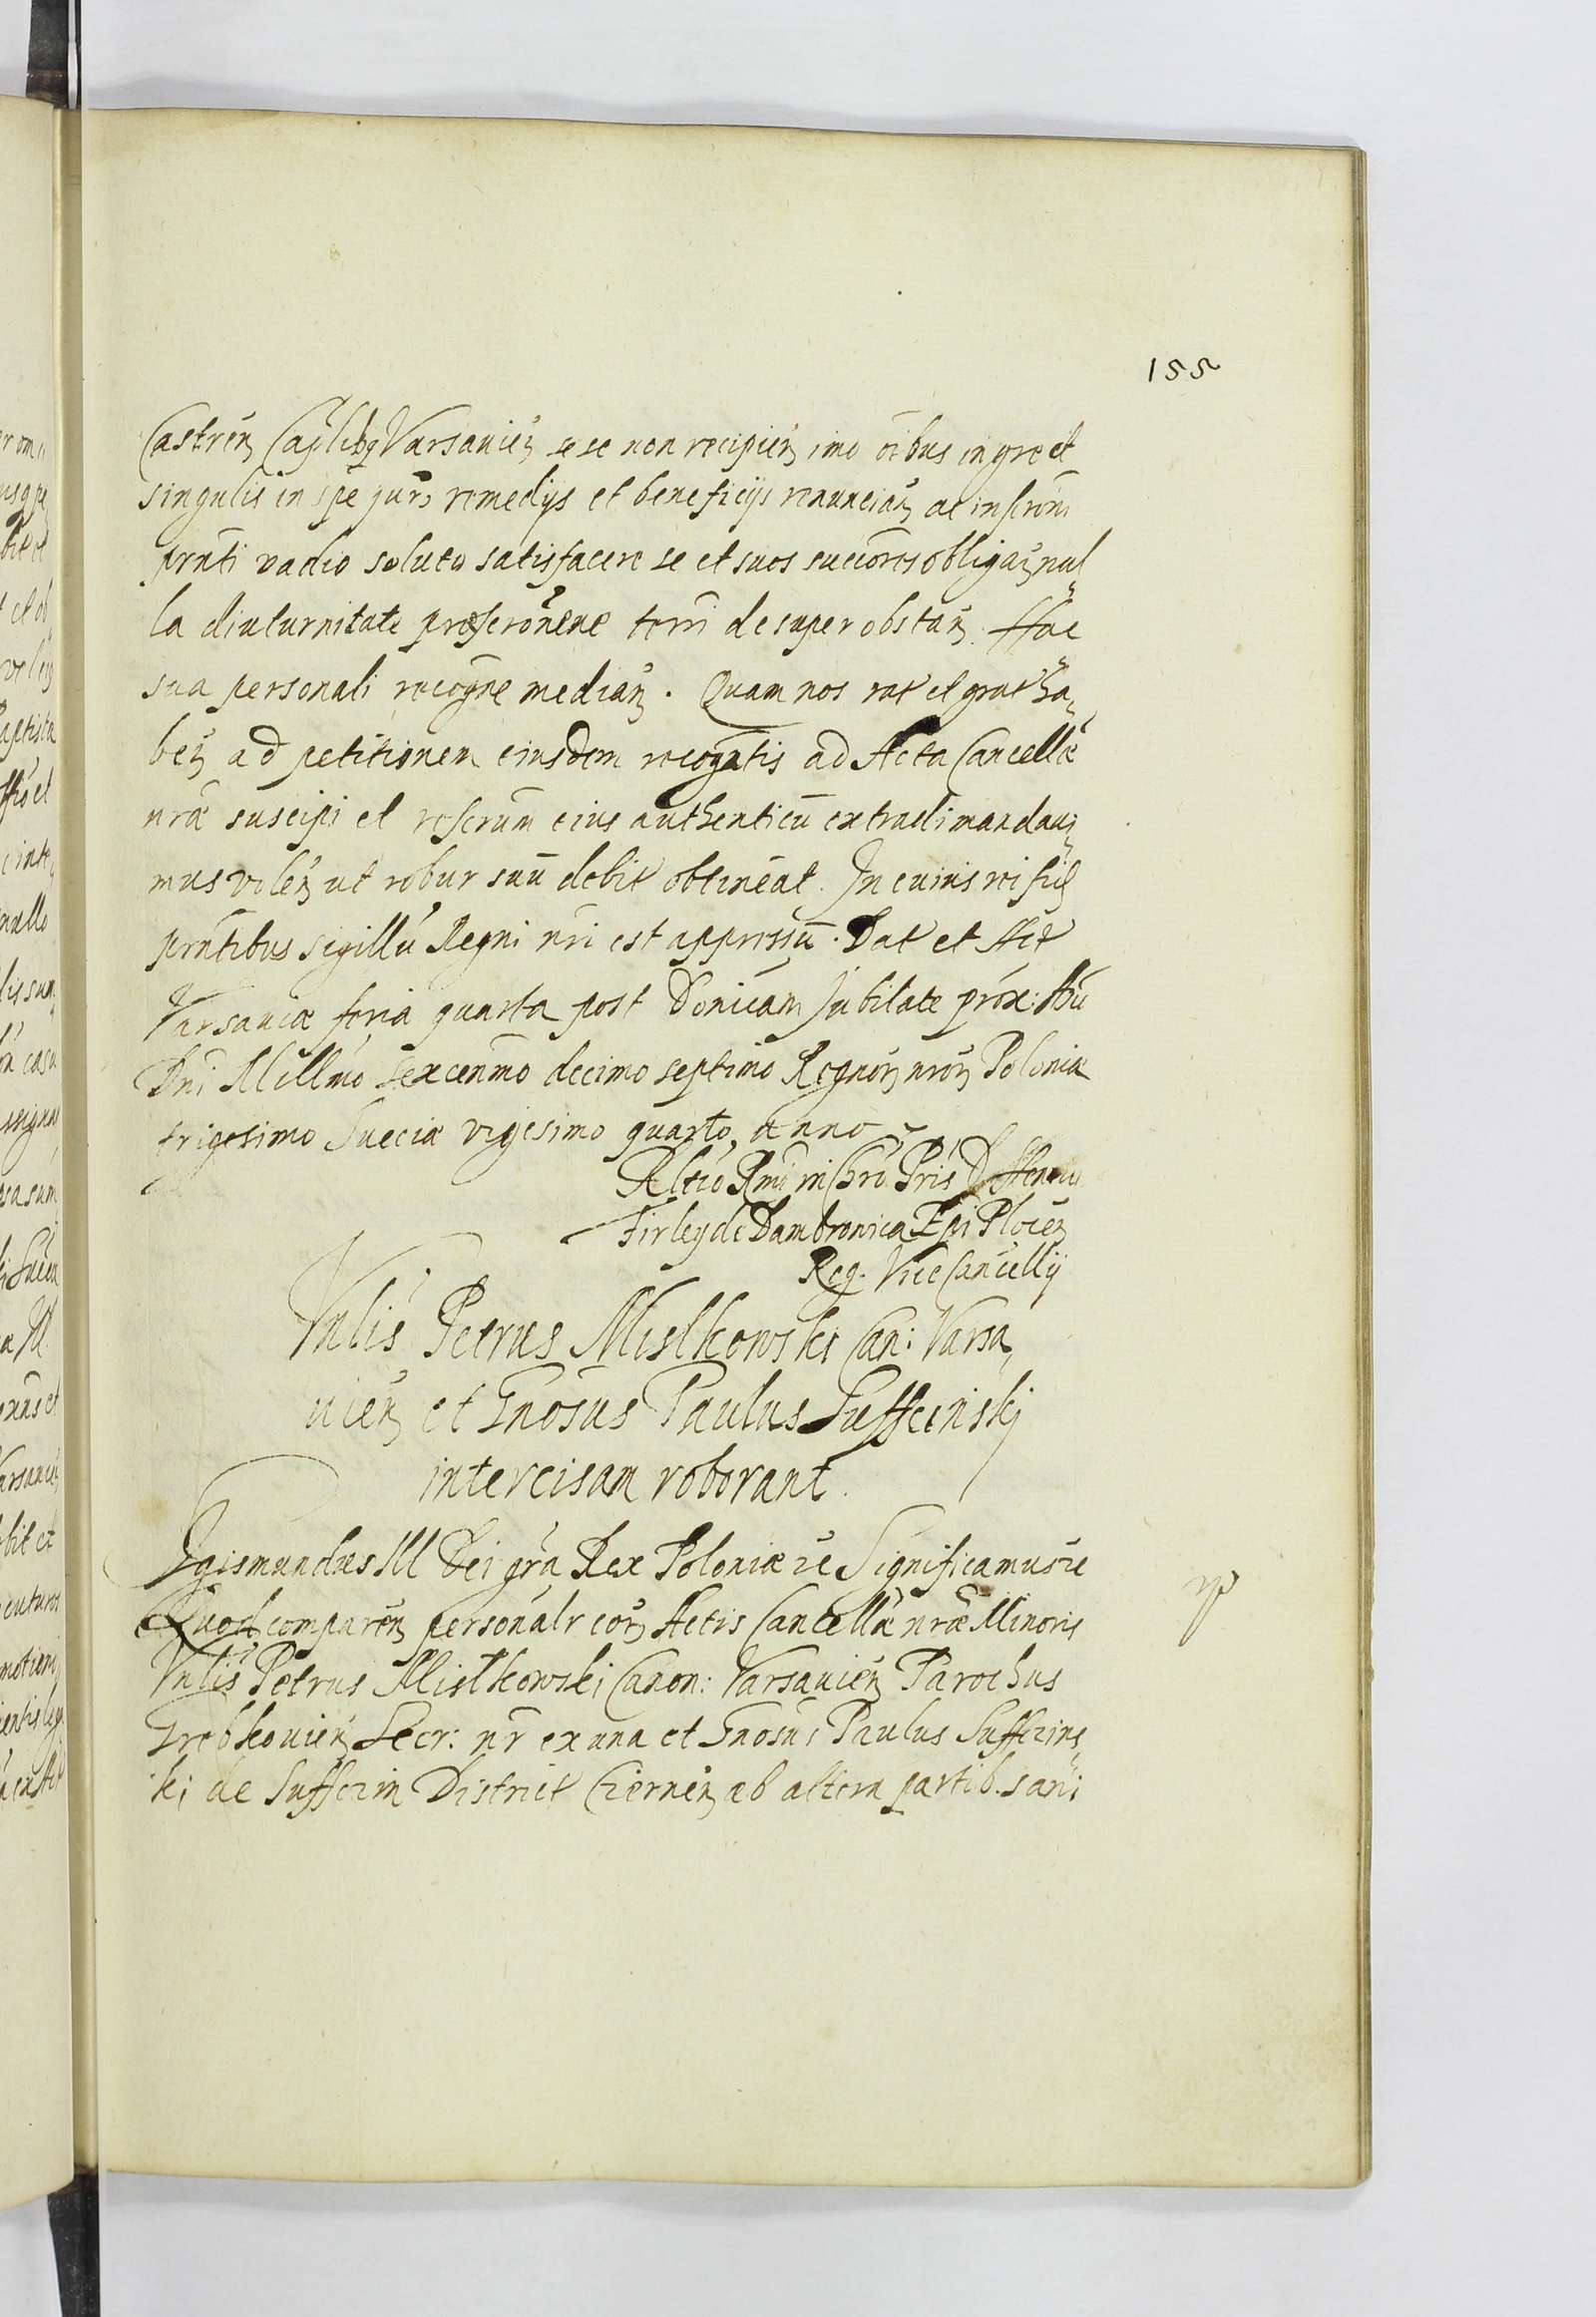 155
Castreñ Varsavieñ se se non recipieñ imo oibus in gre et
singulis in spe juris remedijs et beneficijs renunciañ ac inscroni
prnti vadio soluto satisfacere se et suos succores obligañ nul
la diuturnitate præscronene terri desuper obstañ. Hac
sua personali recogne mediañ. Quam nos rat et grat ha
beñ ad petitionem eiusdem recogntis ad Acta Cancellæ
nræ suscipi et rescrum eius authenticū extradi mandavi
mus voleñ ut robur suū debit obtineat. In cuius rei fid
prntibus sigillū Regni nri est appressū. Dat et Act
Varsaviæ feria quarta post Donicam Jubilate prox: Aū
Dni Millmo sexcenmo decimo septimo Regnor nror Poloniæ
trigesimo Sueciæ vigesimo quarto anno
Rltio Rmi in Chro Pris D Henrici
Firley de Dambrovica Epi Plocen
Reg. Vice Cancellij
Vnlis Petrus Mislkowski Can: Varsa
vien et Gnosus Paulus Suffcinskj
intercisam roborant.
Sigismundus III Dei gra Rex Poloniæ ze Significamus ze
Quod compareñ personalr cor Actis Cancellæ nræ Minoris
Vnlis Petrus Mislkowski Canon: Varsavien Parochus
Grebkovien Secr: nr ex una et Gnosus Paulus Suffczins
ki de Suffczin District Czernen ab altera partib. sani